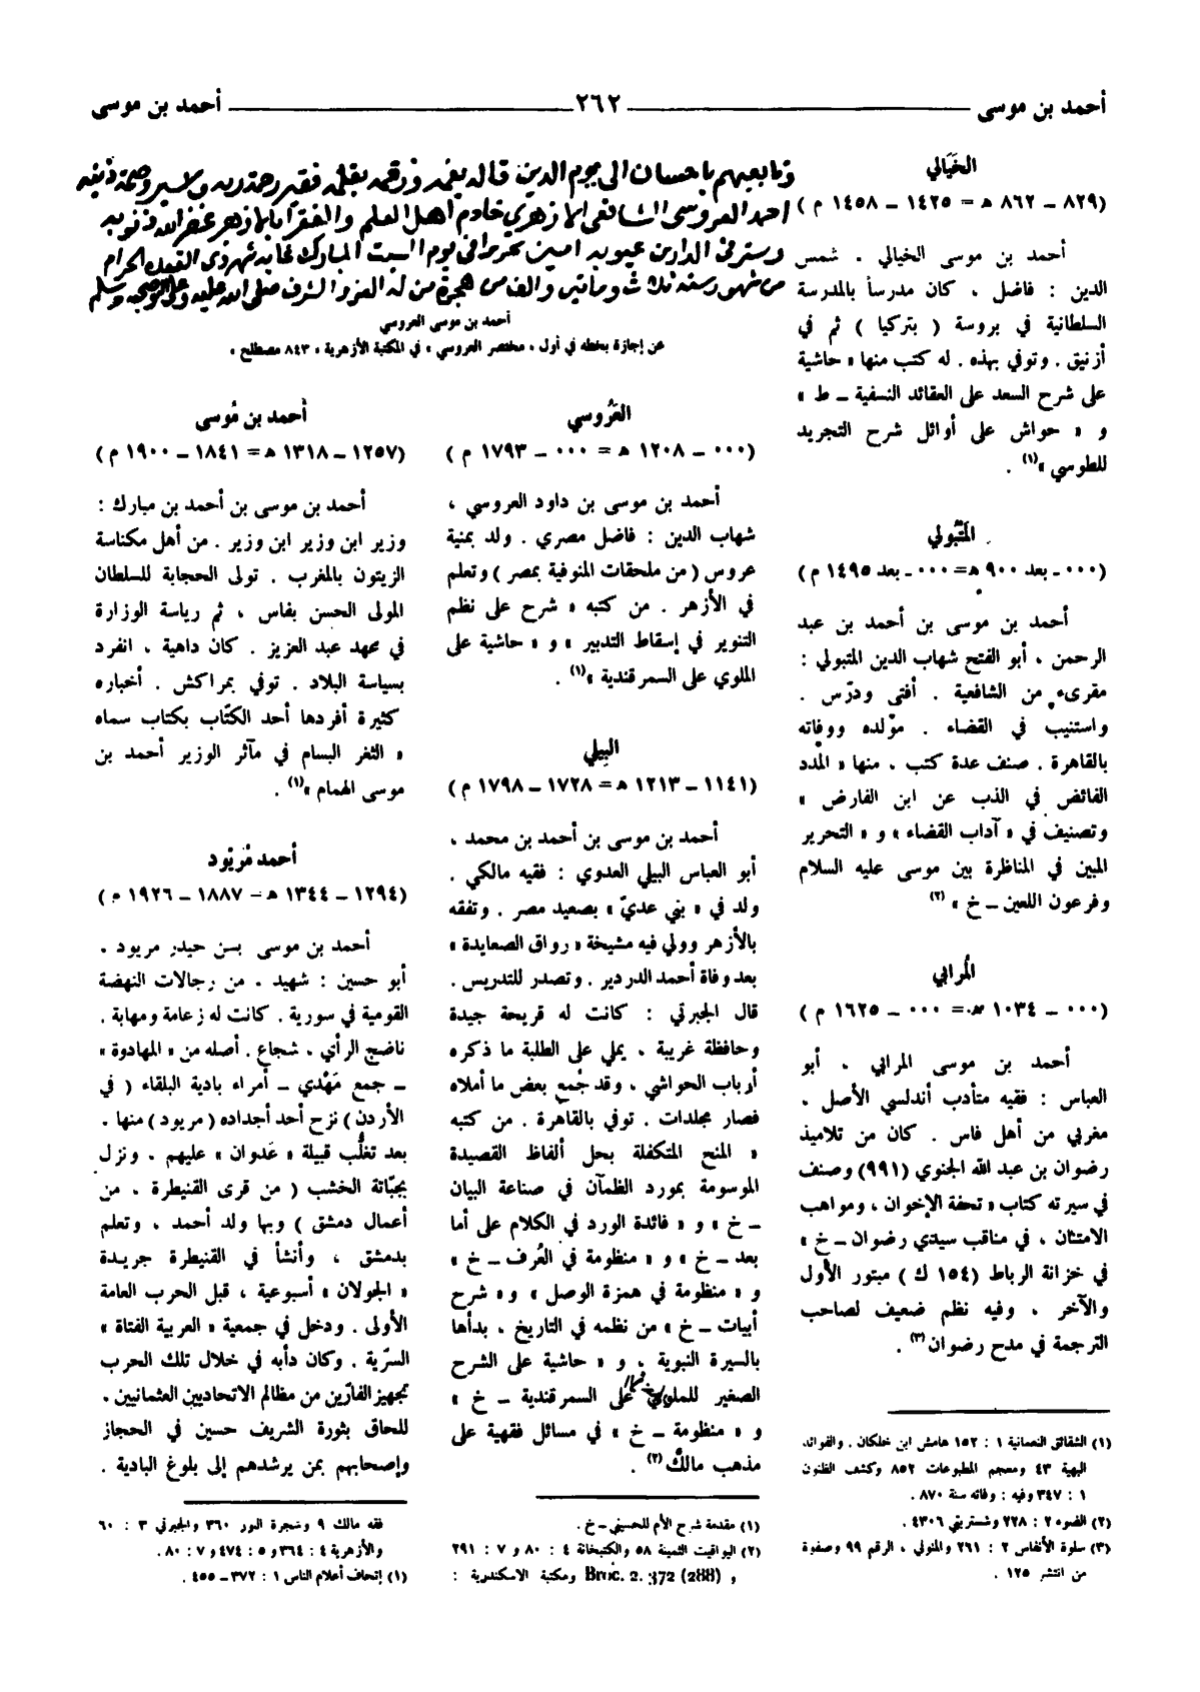 أحمد بن موسى ٢٦٢ أحمد بن موسى
الخَيَالي
(٨٢٩ ــ ٨٦٢ هـ = ١٤٢٥ ــ ١٤٥٨ م)
أحمد بن موسى الخيالي ، شمس
الدين : فاضل ، كان مدرساً بالمدرسة
السلطانية في بروسة ( بتركيا ) ثم في
أزنيق . وتوفي بهذه . له كتب منها « حاشية
على شرح السعد على العقائد النسفية ــ ط »
و « حواش على أوائل شرح التجريد
للطوسي »(١) .
المَتْبُولي
(٠٠٠ ــ بعد ٩٠٠ هـ = ٠٠٠ ــ بعد ١٤٩٥ م)
أحمد بن موسى بن أحمد بن عبد
الرحمن ، أبو الفتح شهاب الدين المتبولي :
مقرىء من الشافعية . أفتى ودرّس .
واستنيب في القضاء . مولده ووفاته
بالقاهرة . صنف عدة كتب ، منها « المدد
الفائض في الذب عن ابن الفارض »
وتصنيف في « آداب القضاء » و « التحرير
المبين في المناظرة بين موسى عليه السلام
وفرعون اللعين ــ خ »(٢)
المُرابي
(٠٠٠ ــ ١٠٣٤ هـ = ٠٠٠ ــ ١٦٢٥ م)
أحمد بن موسى المرابي ، أبو
العباس : فقيه متأدب أندلسي الأصل ،
مغربي من أهل فاس . كان من تلاميذ
رضوان بن عبد الله الجنوي (٩٩١) وصنف
في سيرته كتاب « تحفة الإخوان ، ومواهب
الامتنان ، في مناقب سيدي رضوان ــ خ »
في خزانة الرباط (١٥٤ ك ) مبتور الأول
والآخر ، وفيه نظم ضعيف لصاحب
الترجمة في مدح رضوان(٣) .
(١) الشقائق النعمانية ١ : ١٥٢ هامش ابن خلكان . والفوائد
البهية ٤٣ ومعجم المطبوعات ٨٥٢ وكشف الظنون
١ : ٣٤٧ وفيه : وفاته سنة ٨٧٠ .
(٢) الضوء ٢ : ٢٢٨ وشستربتي ٤٣٠٦ .
(٣) سلوة الأنفاس ٢ : ٢٦١ والمنوني ، الرقم ٩٩ وصفوة
من انتشر ١٢٥ .
وتابعيهم باحسان الى يوم الدين قاله بفمه ورقمه بقلمه فقير رحمة ربه
احمد العروسي الشافعي الازهري خادم اهل العلم والفقرا بالازهر غفر الله ذنوبه
وستر في الدارين عيوبه امين تحريرا في يوم السبت المبارك ثمانية شهر ذي القعدة الحرام
من شهور سنة ثلاث وماتين والف من هجرة من له العز والشرف صلى الله عليه وعلى اله وصحبه وسلم
أحمد بن موسى العروسي
عن إجازة بخطه في أول « مختصر العروسي » في المكتبة الأزهرية « ٨٤٣ مصطلح »
العَرُوسي
(٠٠٠ ــ ١٢٠٨ هـ = ٠٠٠ ــ ١٧٩٣ م)
أحمد بن موسى بن داود العروسي ،
شهاب الدين : فاضل مصري . ولد بمنية
عروس ( من ملحقات المنوفية بمصر ) وتعلم
في الأزهر . من كتبه « شرح على نظم
التنوير في إسقاط التدبير » و « حاشية على
الملوي على السمرقندية »(١) .
البِيلي
(١١٤١ ــ ١٢١٣ هـ = ١٧٢٨ ــ ١٧٩٨ م)
أحمد بن موسى بن أحمد بن محمد ،
أبو العباس البيلي العدوي : فقيه مالكي .
ولد في « بني عديّ » بصعيد مصر . وتفقه
بالأزهر وولي فيه مشيخة « رواق الصعايدة »
بعد وفاة أحمد الدردير . وتصدر للتدريس .
قال الجبرتي : كانت له قريحة جيدة
وحافظة غريبة ، يملي على الطلبة ما ذكره
أرباب الحواشي ، وقد جُمع بعض ما أملاه
فصار مجلدات . توفي بالقاهرة . من كتبه
« المنح المتكفلة بحل ألفاظ القصيدة
الموسومة بمورد الظمآن في صناعة البيان
ــ خ » و « فائدة الورد في الكلام على أما
بعد ــ خ » و « منظومة في العُرف ــ خ »
و « منظومة في همزة الوصل » و « شرح
أبيات ــ خ » من نظمه في التاريخ ، بدأها
بالسيرة النبوية ، و « حاشية على الشرح
الصغير للملوي على السمرقندية ــ خ »
و « منظومة ــ خ » في مسائل فقهية على
مذهب مالك(٢) .
(١) مقدمة شرح الأم للحسيني ــ خ .
(٢) اليواقيت الثمينة ٥٨ والكتبخانة ٤ : ٨٠ و ٧ : ٢٩١
و Broc. 2. 372 (288) ومكتبة الاسكندرية :
أحمد بن مُوسى
(١٢٥٧ ــ ١٣١٨ هـ = ١٨٤١ ــ ١٩٠٠ م)
أحمد بن موسى بن أحمد بن مبارك :
وزير ابن وزير ابن وزير . من أهل مكناسة
الزيتون بالمغرب . تولى الحجابة للسلطان
المولى الحسن بفاس ، ثم رياسة الوزارة
في عهد عبد العزيز . كان داهية ، انفرد
بسياسة البلاد . توفي بمراكش . أخباره
كثيرة أفردها أحد الكتّاب بكتاب سماه
« الثغر البسام في مآثر الوزير أحمد بن
موسى الهمام »(١) .
أحمد مُرَيْوِد
(١٢٩٤ ــ ١٣٤٤ هـ = ١٨٨٧ ــ ١٩٢٦ م)
أحمد بن موسى بسن حيدر مريود ،
أبو حسين : شهيد ، من رجالات النهضة
القومية في سورية . كانت له زعامة ومهابة .
ناضج الرأي ، شجاع . أصله من « المهادوة »
ــ جمع مَهْدي ــ أمراء بادية البلقاء ( في
الأردن ) نزح أحد أجداده ( مريود ) منها ،
بعد تغلُّب قبيلة « عَدوان » عليهم ، ونزل
بجبّاتة الخشب ( من قرى القنيطرة ، من
أعمال دمشق ) وبها ولد أحمد ، وتعلم
بدمشق ، وأنشأ في القنيطرة جريدة
« الجولان » أسبوعية ، قبل الحرب العامة
الأولى . ودخل في جمعية « العربية الفتاة »
السرّية . وكان دأبه في خلال تلك الحرب
تجهيز الفارّين من مظالم الاتحاديين العثمانيين ،
للحاق بثورة الشريف حسين في الحجاز
وإصحابهم بمن يرشدهم إلى بلوغ البادية .
فقه مالك ٩ وشجرة النور ٣٦٠ والجبرتي ٣ : ٦٠
والأزهرية ٤ : ٣٦٤ و ٥ : ٤٧٤ و ٧ : ٨٠ .
(١) إتحاف أعلام الناس ١ : ٣٧٢ ــ ٤٥٥ .